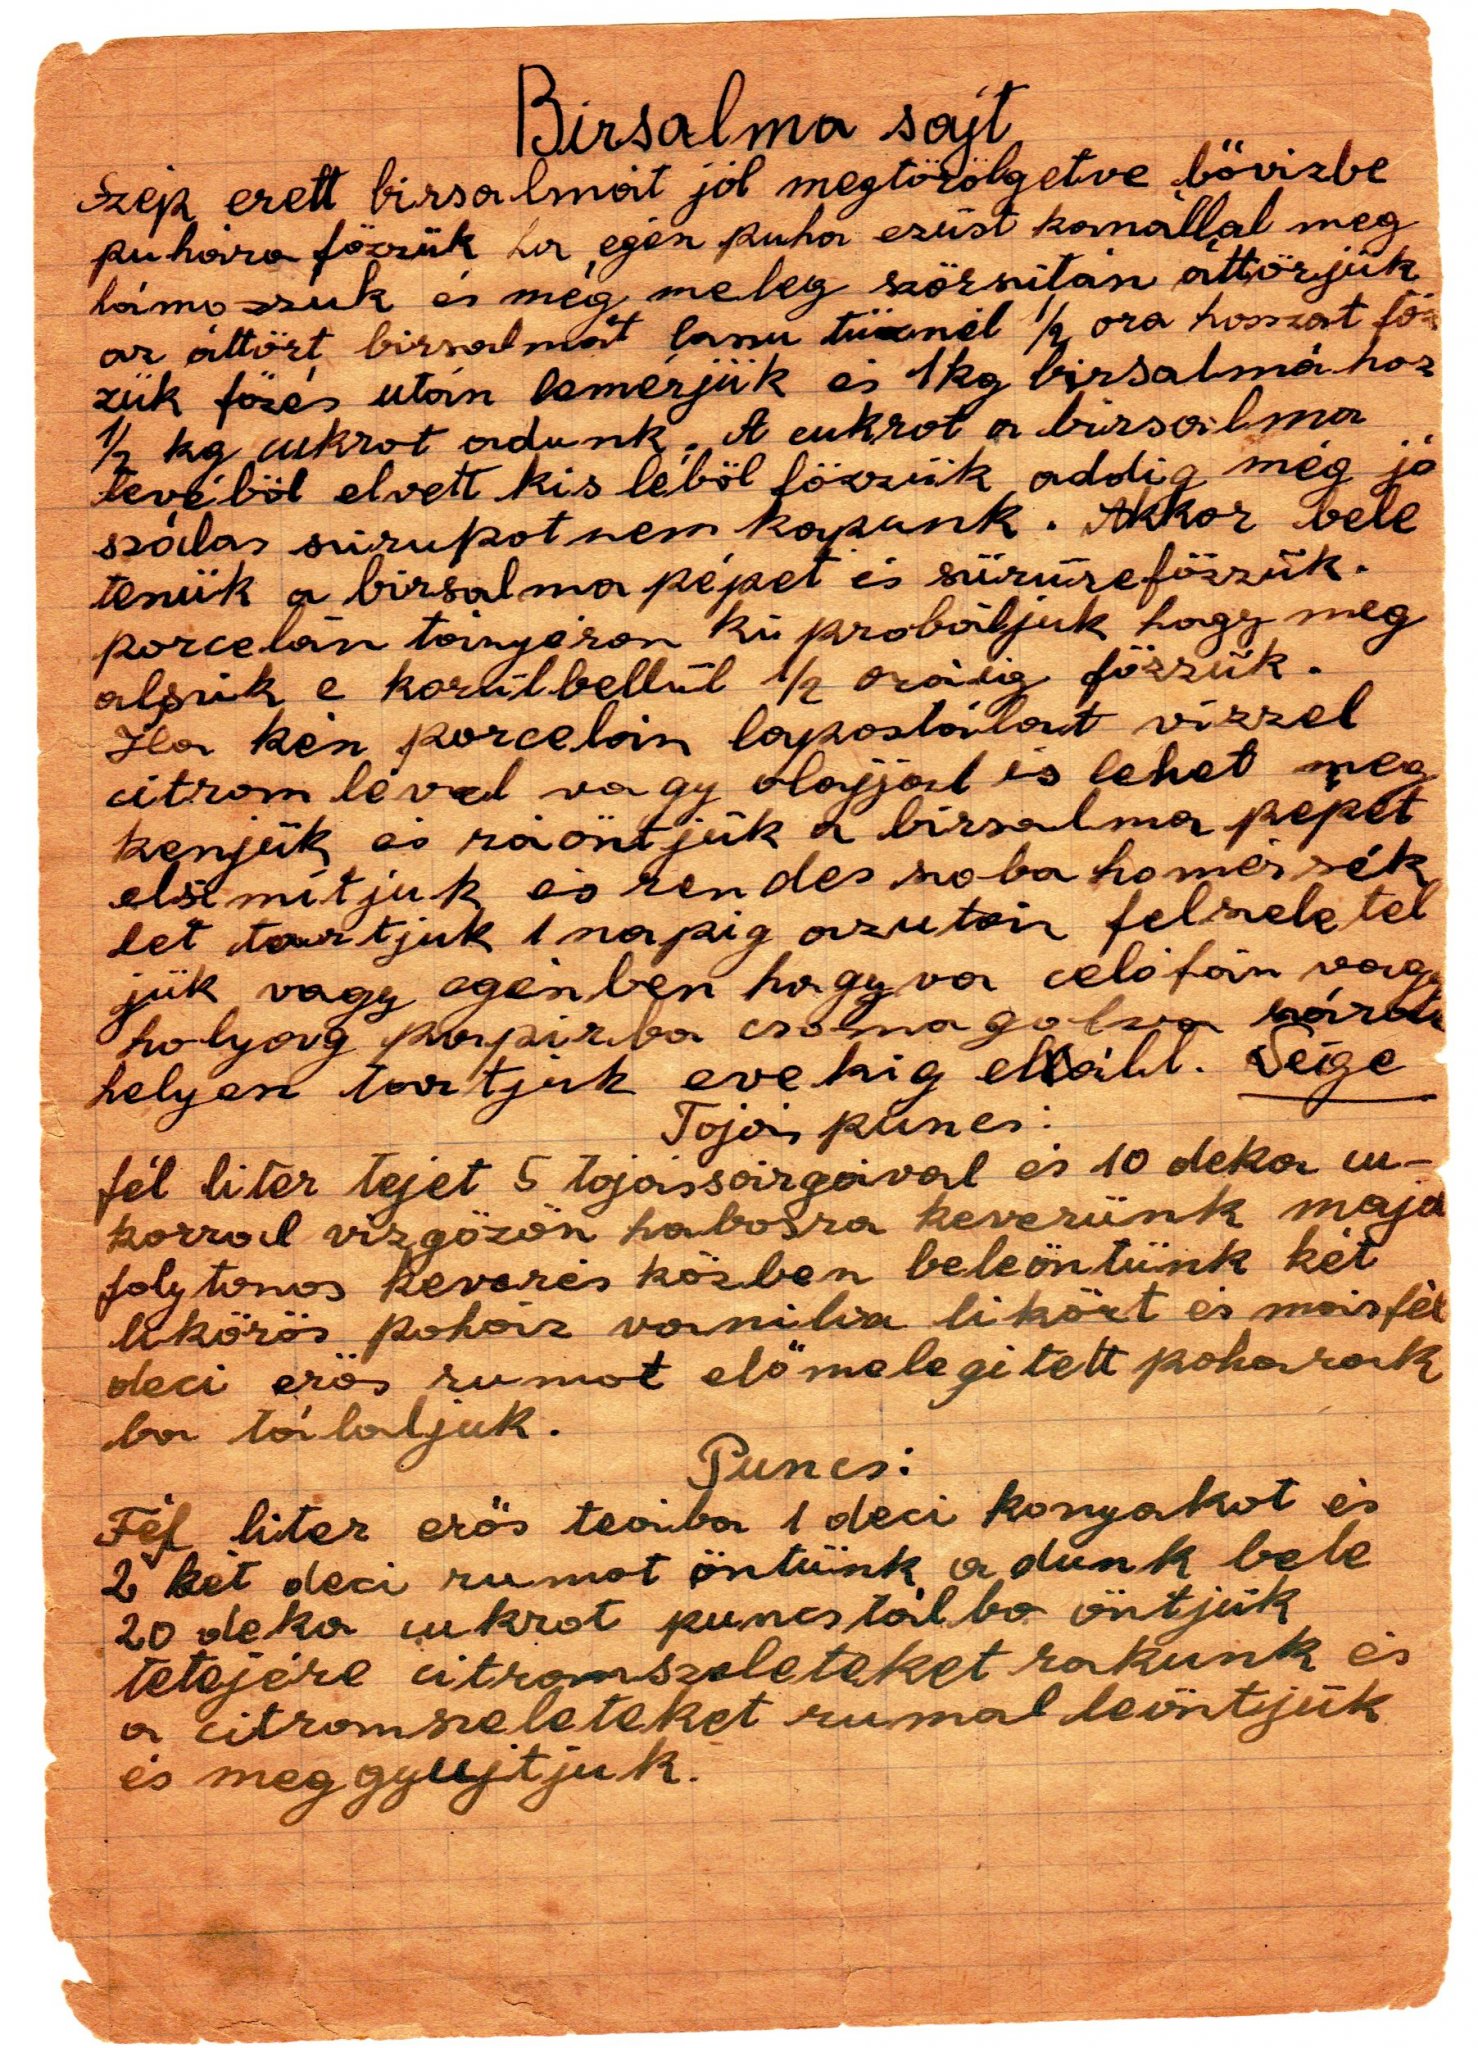 Birsalma sajt
Szép erett birsalmát jól megtörölgetve bővizbe
puhára főzzük ha egén puha ezüst kanállal meg
lámozzuk és még meleg szörsitán áttörjük
az áttört birsalmát lanu tüznél 1/2 ora hosszat föz
zük főzés után lemérjük és 1kg birsalmához
1/2 kg cukrot adunk. A cukrot a birsalma
levéböl elvett kis léböl főzzük addig még jó
szálas sürupot nem kapunk. Akkor bele
tenük a birsalma pépet és sürürefőzzük.
porcelán tányéron ki probáljuk hogy meg
alszik e korülbellül 1/2 oráig főzzük.
Ha kén porcelán lapostálat vizzel
citrom lével vagy olajjal is lehet meg
kenjük és ráöntjük a birsalma pépet
elsimitjuk és rendes soba homérsék
let tartjuk 1 napig azután felszeletel
jük vagy egénben hagyva celofán vagy
holyag papirba csomagolva száraz
helyen tartjuk evekig elláll. Vége
Tojás puncs:
fél liter tejet 5 tojássárgával és 10 deka cu-
korral vizgőzön habosra keverünk majd
folytonos keverés közben beleöntünk két
likörös pohár vanilia likört és másfél
deci erős rumot előmelegitett poharak
ba tálaljuk.
Puncs:
Fél liter erős teába 1 deci konyakot és
2 két deci rumot öntünk adunk bele
20 deka cukrot puncstálba öntjük
tetejére citromszeleteket rakunk és
a citromszeleteket rumal leöntjük
és meggyujtjuk.